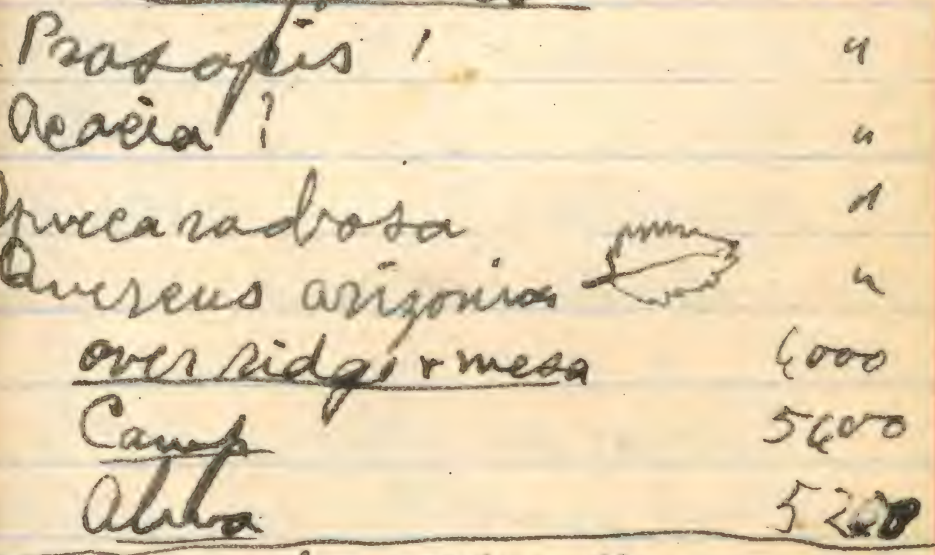 Prosopis ! "
Acacia ? "
Yucca radiosa "
Quercus arizonica "
over ridge & mesa 6000
Camp 5600
Alma 5200